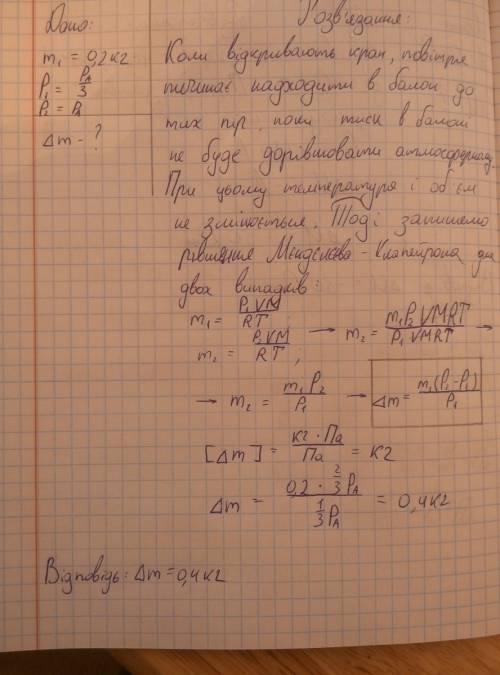 Дано:
m₁ = 0,2 кг
P₁ = Pₐ/3
P₂ = Pₐ
Δm - ?
Розв'язання:
Коли відкривають кран, повітря
починає надходити в балон до
тих пір, поки тиск в балоні
не буде дорівнювати атмосферному.
При цьому температура і об'єм
не змінюється. Тоді запишемо
рівняння Менделєєва - Клапейрона для
двох випадків:
m₁ = P₁VM/RT
m₂ = P₂VM/RT, → m₂ = m₁P₂VMRT/P₁VMRT →
→ m₂ = m₁P₂/P₁ → Δm = m₁(P₂-P₁)/P₁
[Δm] = кг · Па/Па = кг
Δm = 0,2 · 2/3 Pₐ / 1/3 Pₐ = 0,4 кг
Відповідь: Δm = 0,4 кг